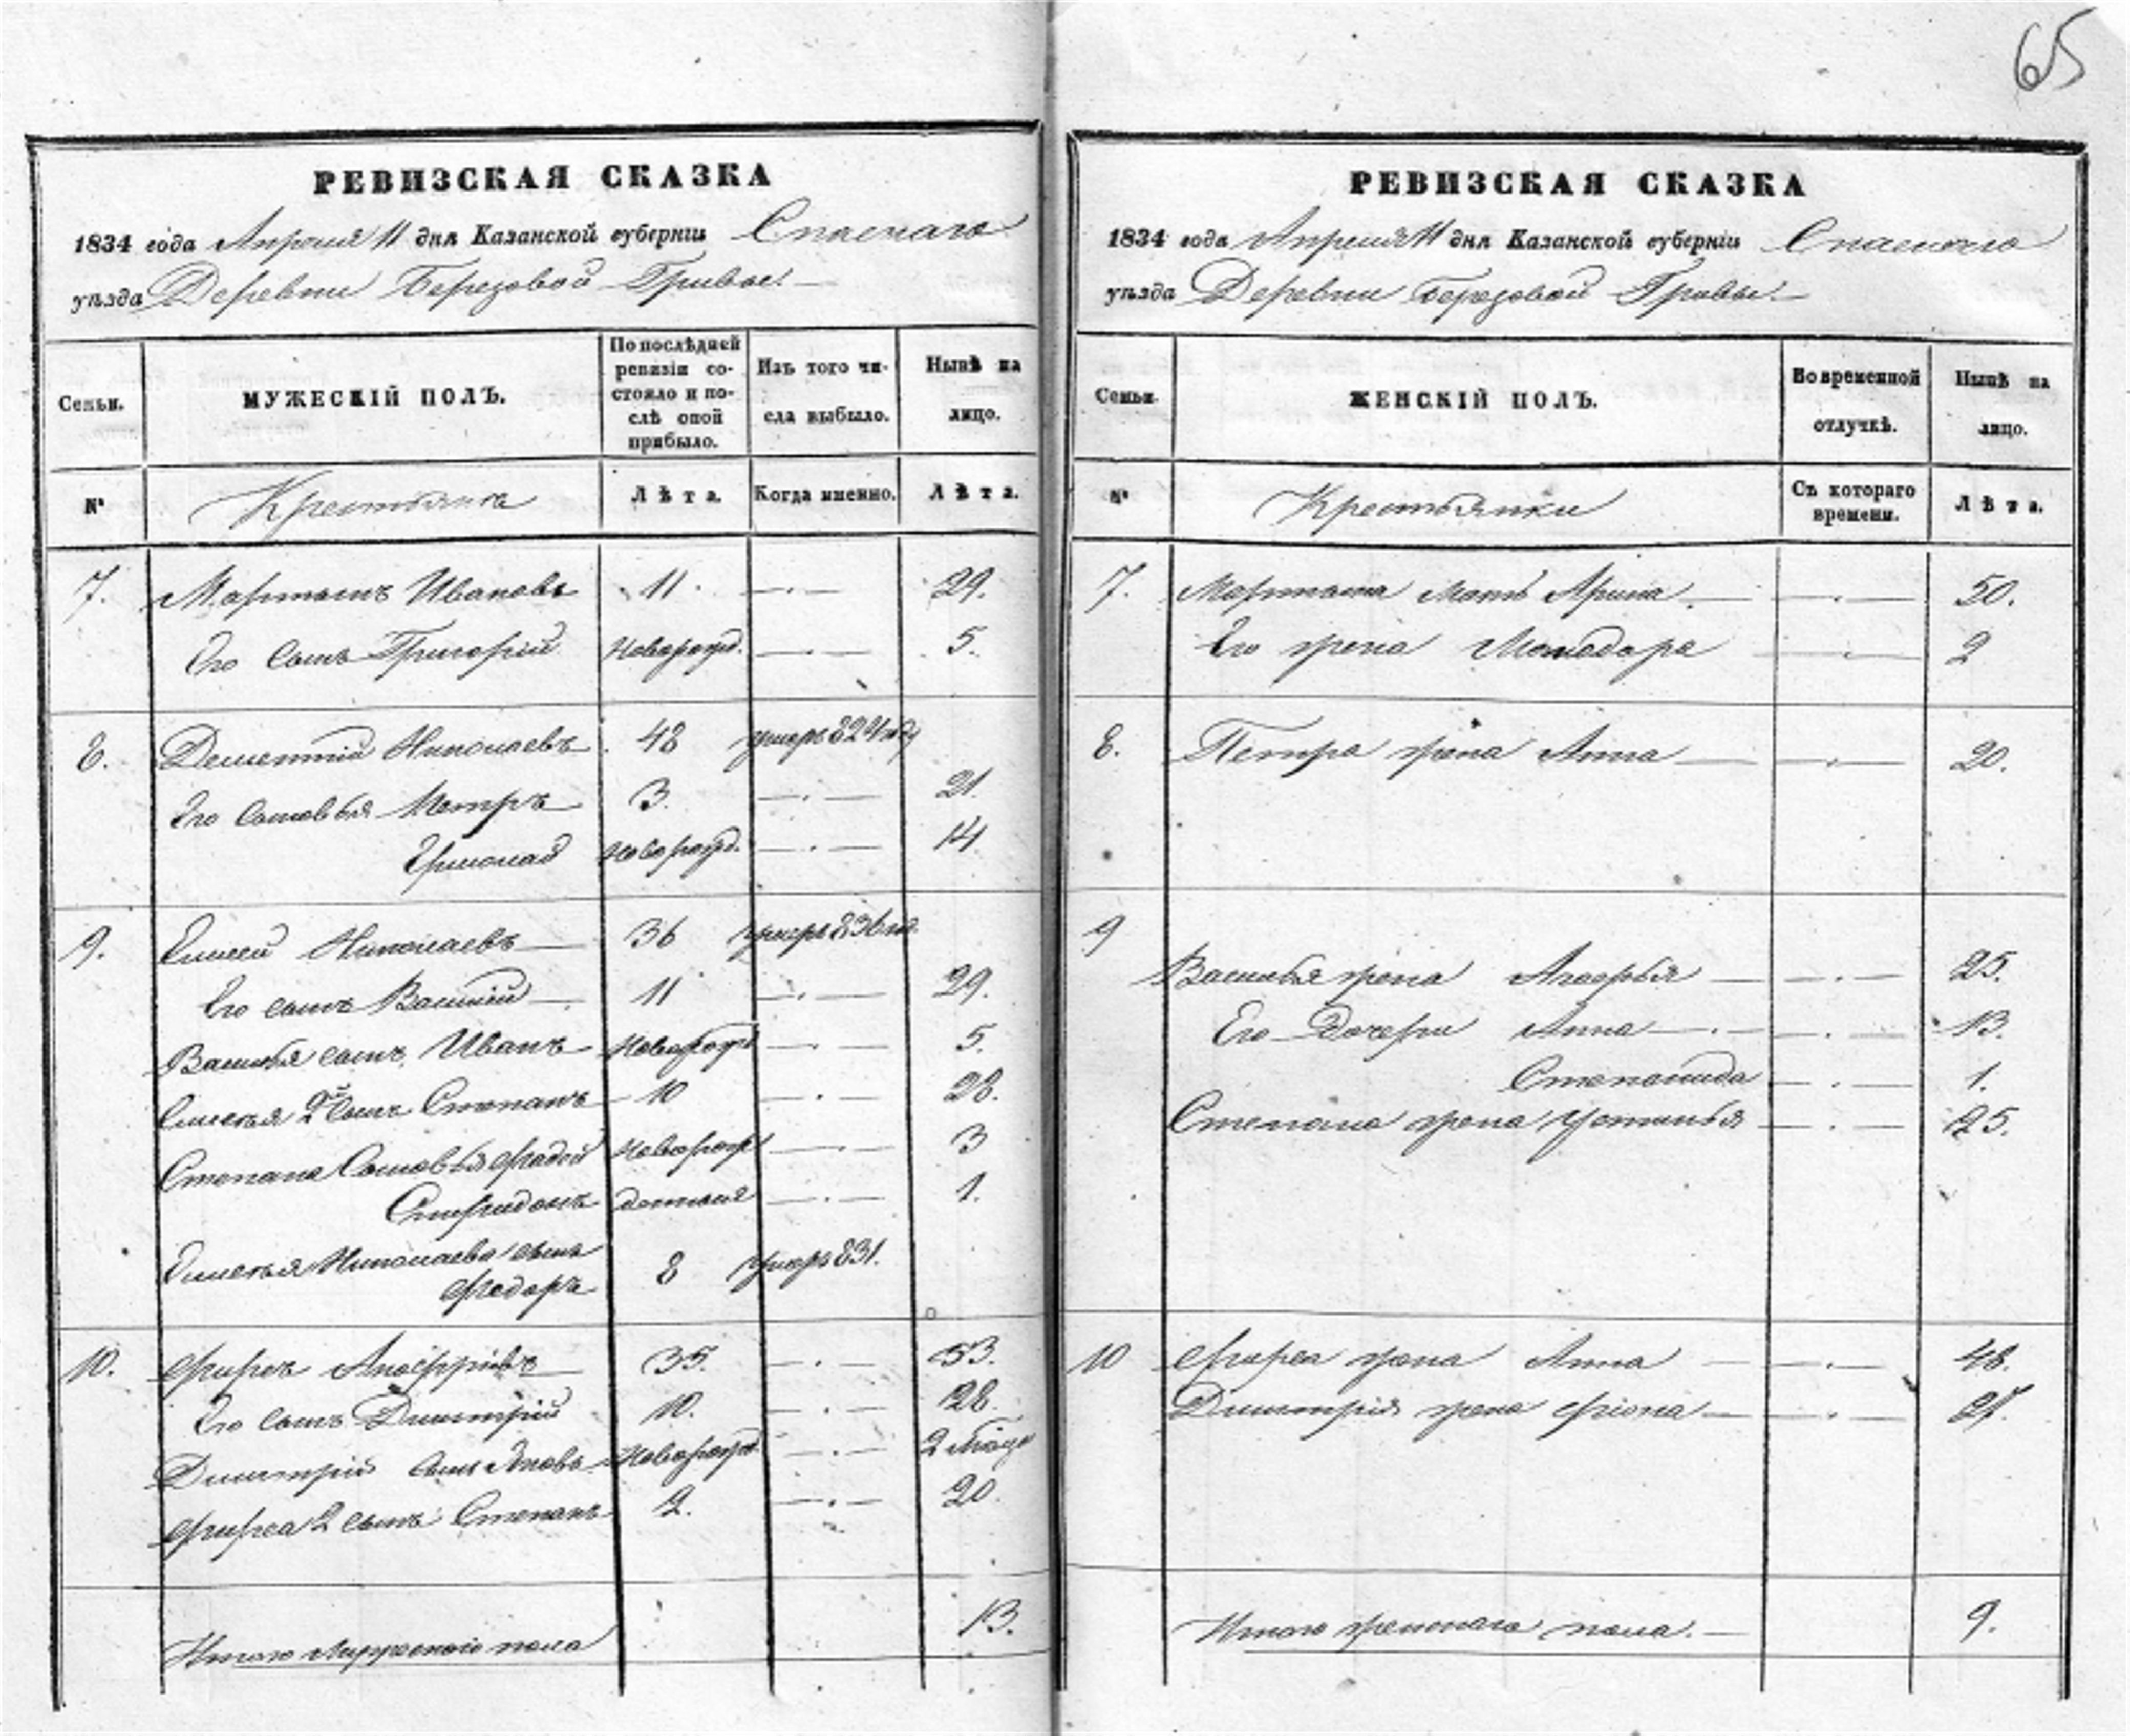 65
РЕВИЗСКАЯ СКАЗКА
1834 года Апреля 11 дня Казанской губерніи Спаскаго
уѣзда Деревни Березовой Гривы
Семьи. МУЖЕСКІЙ ПОЛЪ. По послѣдней ревизіи состояло и послѣ оной прибыло. Изъ того числа выбыло. Нынѣ на лицо.
№ Крестьяне Лѣта. Когда именно. Лѣта.
7. Мартынъ Ивановъ 11. 29.
Его сынъ Григорій Новорожд. 5.
8. Дементій Николаевъ 48 умеръ 824
Его сыновья Петръ 3. 21.
Новорожд. 14
9. Елисей Николаевъ 36 умеръ
Его сынъ Василій 11 29.
Василья сынъ Иванъ Новорожд 5.
Елисея 2й сынъ Степанъ 10 28.
Степана Сыновья Фадей Новорож 3
Спиридонъ 1.
Елисея Николаева сынъ
Федоръ 8 умеръ 831.
10. Фирсъ 35. 53.
Его сынъ Димитрій 10. 28.
Димитрій сынъ Яковъ Новорожд. 2
Фирса 2 сынъ Степанъ 2. 20.
Итого Мужескаго пола 13.
РЕВИЗСКАЯ СКАЗКА
1834 года Апреля 11 дня Казанской губерніи Спаскаго
уѣзда Деревни Березовой Гривы
Семьи. ЖЕНСКІЙ ПОЛЪ. Во временной отлучкѣ. Нынѣ на лицо.
№ Крестьянки Съ котораго времени. Лѣта.
7. Мартына мать Арина 50.
Его жена 2
8. Петра жена Анна 20.
9
Василья жена 25.
Его Дочери Анна 13.
Степанида 1.
Степана жена Устинья 25.
10 Фирса жена Анна 48.
Димитрія жена
Итого женскаго пола. 9.